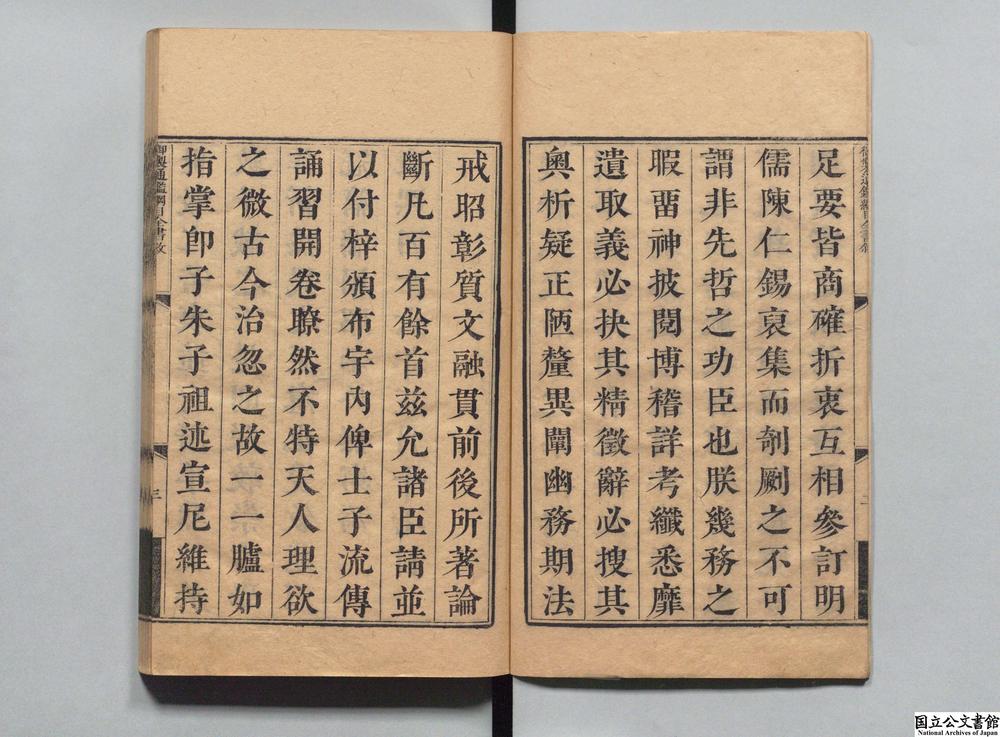 足要皆商確折衷互相參訂明
儒陳仁錫裒集而剞劂之不可
謂非先哲之功臣也朕幾務之
暇畱神披閱博稽詳考纖悉靡
遺取義必抉其精徵辭必搜其
奧析疑正陋釐異闡幽務期法
二
戒昭彰質文融貫前後所著論
斷凡百有餘首茲允諸臣請並
以付梓頒布宇內俾士子流傳
誦習開卷瞭然不特天人理欲
之微古今治忽之故一一臚如
指掌卽子朱子祖述宣尼維持
御製通鑑綱目全書敘
三
国立公文書館
National Archives of Japan